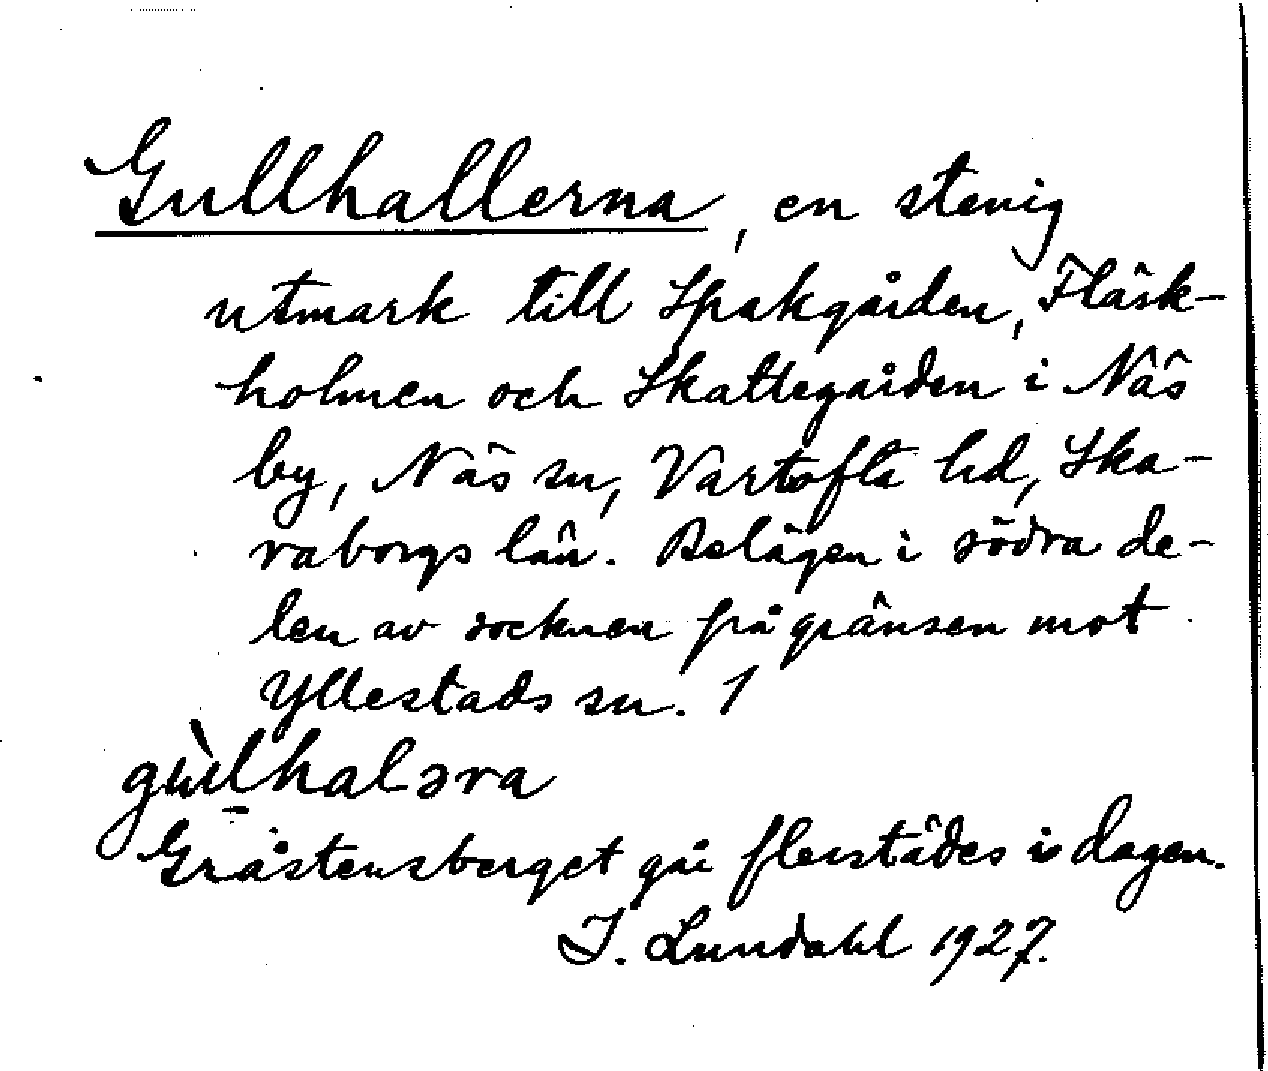 Gullhallerna, en stenig
utmark till Spakgården, Fläsk-
holmen och Skattegården i Näs
by, Näs sn, Vartofta hd, Ska-
raborgs län. Belägen i södra de-
len av socknen på gränsen mot
Yllestads sn. 1
Gråstensberget går flerstädes i dagen.
I. Lundahl 1927.